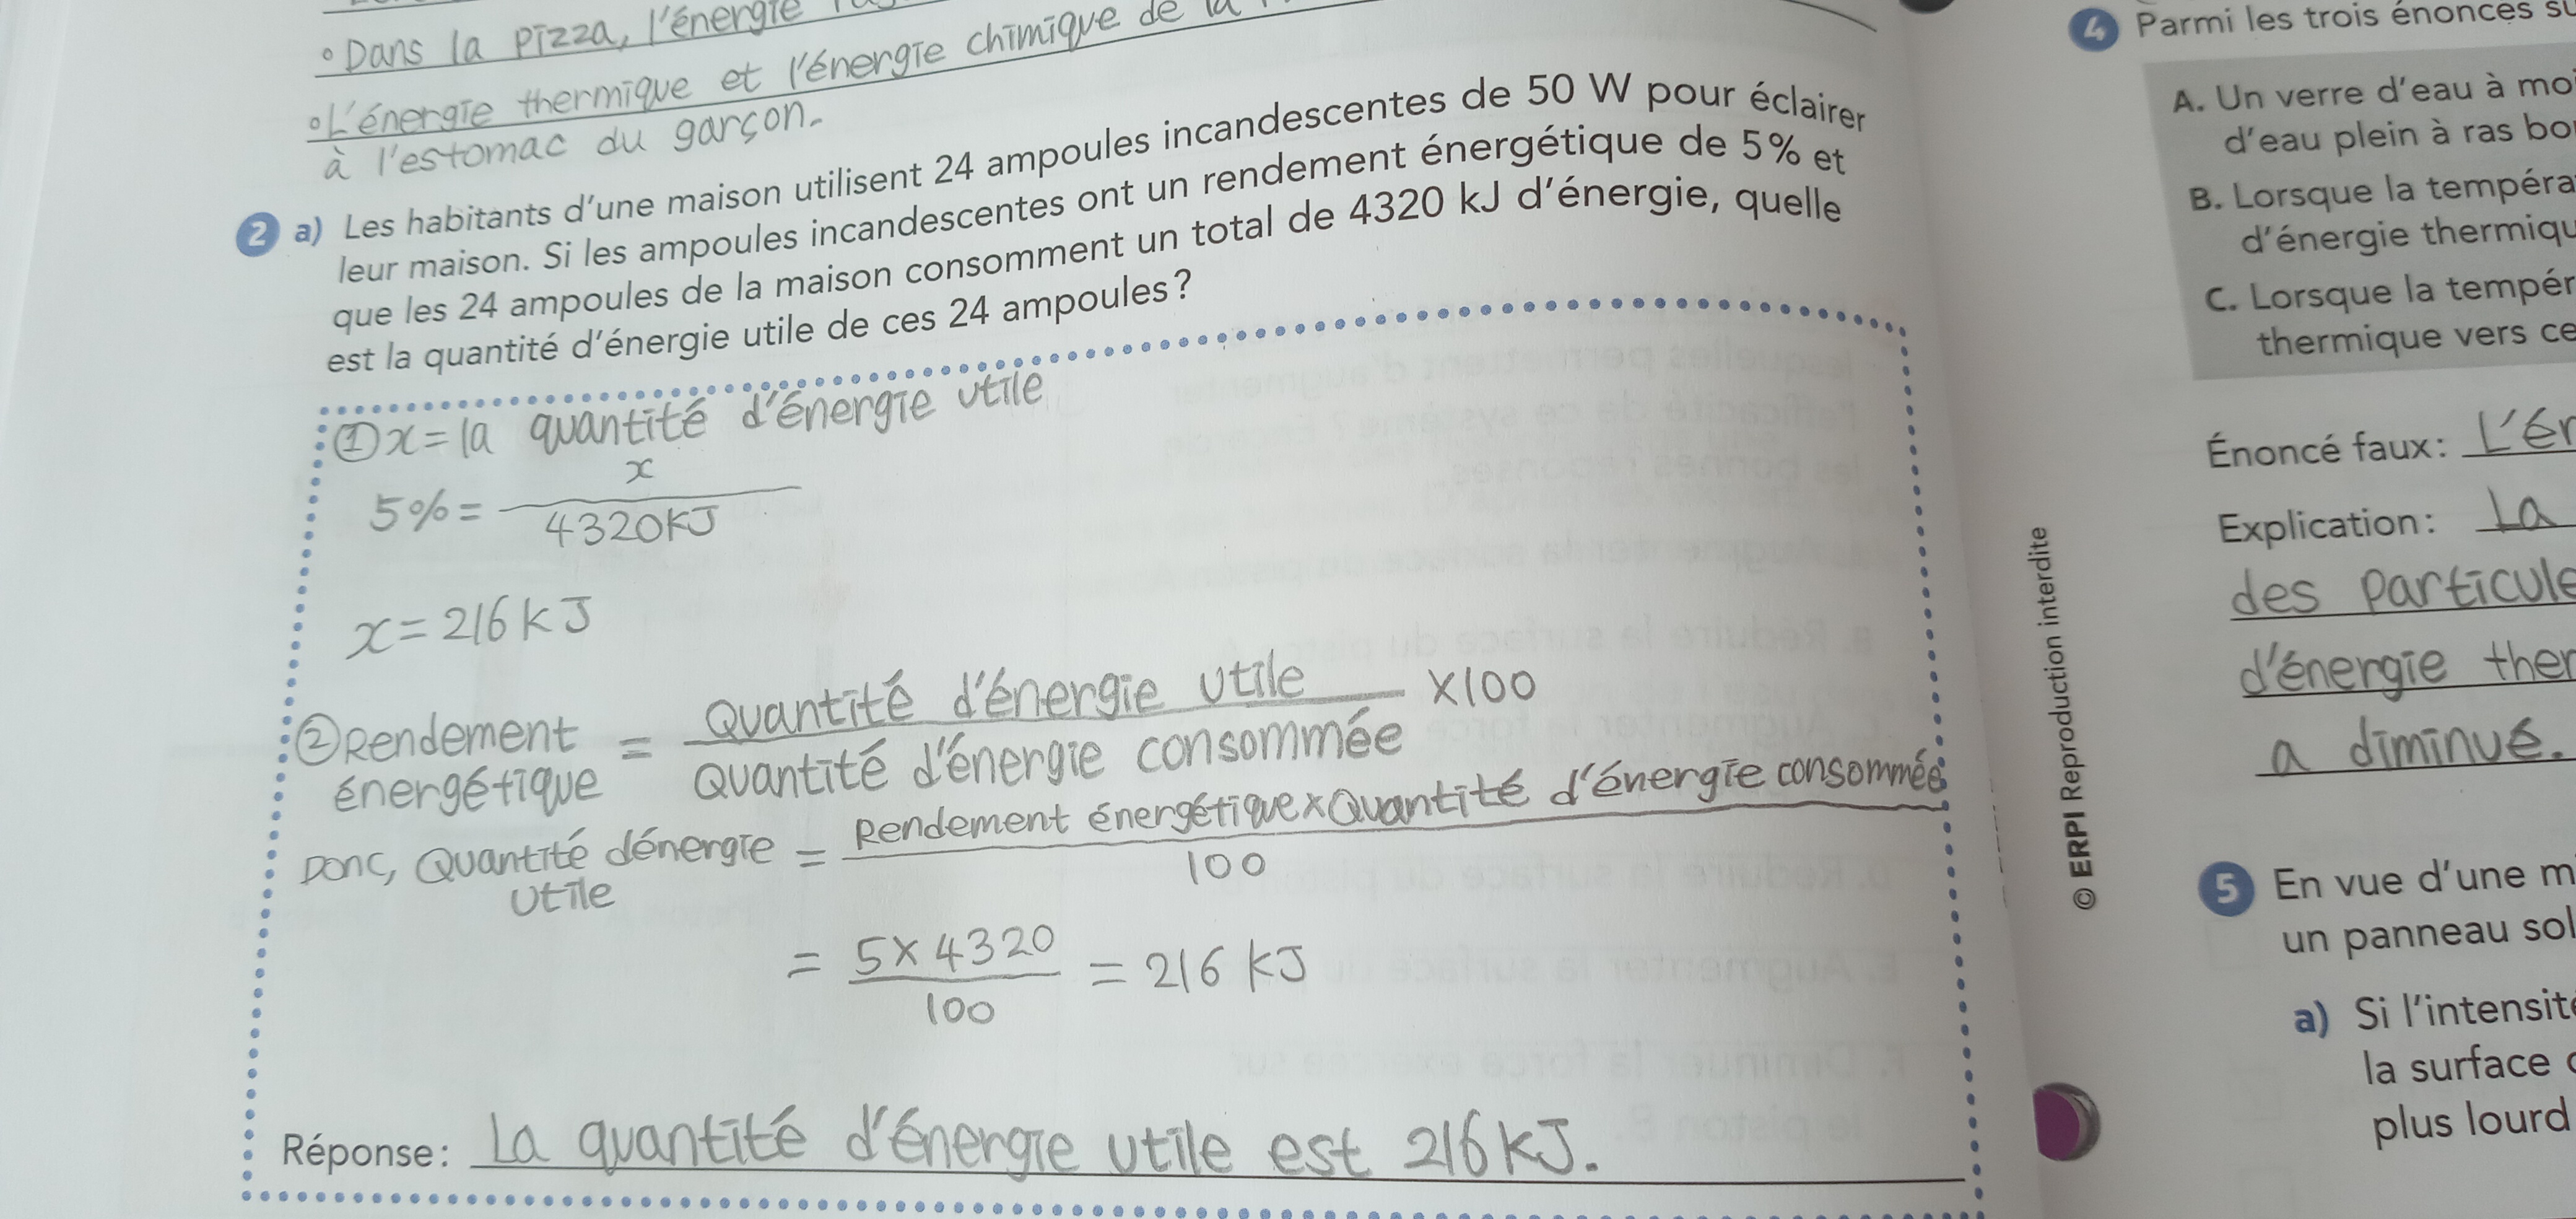 ◦Dans la pizza, l'énergie
◦L'énergie thermique et l'énergie chimique de la
à l'estomac du garçon.
2 a) Les habitants d'une maison utilisent 24 ampoules incandescentes de 50 W pour éclairer
leur maison. Si les ampoules incandescentes ont un rendement énergétique de 5% et
que les 24 ampoules de la maison consomment un total de 4320 kJ d'énergie, quelle
est la quantité d'énergie utile de ces 24 ampoules?
① x = la quantité d'énergie utile
5% = x / 4320KJ
x = 216 kJ
② Rendement énergétique = Quantité d'énergie utile / Quantité d'énergie consommée ×100
Donc, Quantité dénergie utile = Rendement énergétique × Quantité d'énergie consommée / 100
= 5 × 4320 / 100 = 216 kJ
Réponse: La quantité d'énergie utile est 216 kJ.
© ERPI Reproduction interdite
4 Parmi les trois énoncés
A. Un verre d'eau à
d'eau plein à ras
B. Lorsque la
d'énergie
C. Lorsque la
thermique vers
Énoncé faux:
Explication: La
des
d'énergie
a diminué.
5 En vue d'une
un panneau
a) Si
la surface
plus lourd